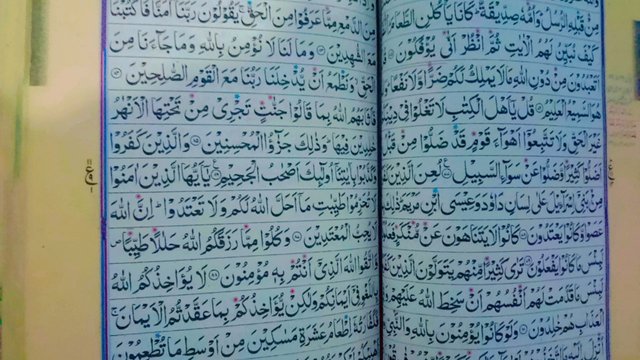 مِنْ قَبْلِهِ الرُّسُلُ وَاُمُّهٗ صِدِّيْقَةٌ كَانَا يَاْكُلٰنِ الطَّعَامَ
كَيْفَ نُبَيِّنُ لَهُمُ الْاٰيٰتِ ثُمَّ انْظُرْ اَنّٰى يُؤْفَكُوْنَ
تَعْبُدُوْنَ مِنْ دُوْنِ اللّٰهِ مَا لَا يَمْلِكُ لَكُمْ ضَرًّا وَّلَا نَفْعًا
هُوَ السَّمِيْعُ الْعَلِيْمُ قُلْ يٰٓاَهْلَ الْكِتٰبِ لَا تَغْلُوْا فِيْ
غَيْرَ الْحَقِّ وَلَا تَتَّبِعُوْٓا اَهْوَآءَ قَوْمٍ قَدْ ضَلُّوْا مِنْ
اَضَلُّوْا كَثِيْرًا وَّضَلُّوْا عَنْ سَوَآءِ السَّبِيْلِ لُعِنَ الَّذِيْنَ
مِنْۢ بَنِيْٓ اِسْرَآءِيْلَ عَلٰى لِسَانِ دَاوٗدَ وَعِيْسَى ابْنِ مَرْيَمَ ذٰلِكَ
عَصَوْا وَّكَانُوْا يَعْتَدُوْنَ كَانُوْا لَا يَتَنَاهَوْنَ عَنْ مُّنْكَرٍ
لَبِئْسَ مَا كَانُوْا يَفْعَلُوْنَ تَرٰى كَثِيْرًا مِّنْهُمْ يَتَوَلَّوْنَ الَّذِيْنَ
لَبِئْسَ مَا قَدَّمَتْ لَهُمْ اَنْفُسُهُمْ اَنْ سَخِطَ اللّٰهُ عَلَيْهِمْ
الْعَذَابِ هُمْ خٰلِدُوْنَ وَلَوْ كَانُوْا يُؤْمِنُوْنَ بِاللّٰهِ وَالنَّبِيِّ
مِنَ الدَّمْعِ مِمَّا عَرَفُوْا مِنَ الْحَقِّ يَقُوْلُوْنَ رَبَّنَآ اٰمَنَّا فَاكْتُبْنَا
مَعَ الشّٰهِدِيْنَ وَمَا لَنَا لَا نُؤْمِنُ بِاللّٰهِ وَمَا جَآءَنَا مِنَ
الْحَقِّ وَنَطْمَعُ اَنْ يُّدْخِلَنَا رَبُّنَا مَعَ الْقَوْمِ الصّٰلِحِيْنَ
فَاَثَابَهُمُ اللّٰهُ بِمَا قَالُوْا جَنّٰتٍ تَجْرِيْ مِنْ تَحْتِهَا الْاَنْهٰرُ
خٰلِدِيْنَ فِيْهَا وَذٰلِكَ جَزَآءُ الْمُحْسِنِيْنَ وَالَّذِيْنَ كَفَرُوْا
وَكَذَّبُوْا بِاٰيٰتِنَآ اُولٰٓئِكَ اَصْحٰبُ الْجَحِيْمِ يٰٓاَيُّهَا الَّذِيْنَ اٰمَنُوْا
لَا تُحَرِّمُوْا طَيِّبٰتِ مَآ اَحَلَّ اللّٰهُ لَكُمْ وَلَا تَعْتَدُوْا اِنَّ اللّٰهَ
لَا يُحِبُّ الْمُعْتَدِيْنَ وَكُلُوْا مِمَّا رَزَقَكُمُ اللّٰهُ حَلٰلًا طَيِّبًا
وَّاتَّقُوا اللّٰهَ الَّذِيْٓ اَنْتُمْ بِهٖ مُؤْمِنُوْنَ لَا يُؤَاخِذُكُمُ اللّٰهُ
بِاللَّغْوِ فِيْٓ اَيْمَانِكُمْ وَلٰكِنْ يُّؤَاخِذُكُمْ بِمَا عَقَّدْتُّمُ الْاَيْمَانَ
فَكَفَّارَتُهٗٓ اِطْعَامُ عَشَرَةِ مَسٰكِيْنَ مِنْ اَوْسَطِ مَا تُطْعِمُوْنَ